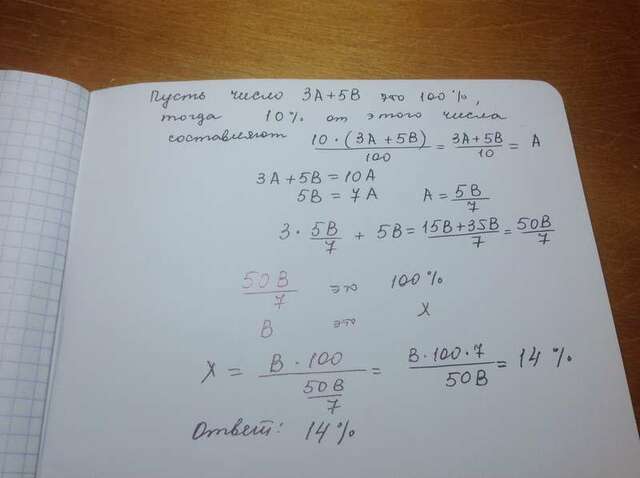 Пусть число 3А+5В это 100%,
тогда 10% от этого числа
составляют 10·(3А+5В)/100 = 3А+5В/10 = А
3А+5В=10А
5В=7А А=5В/7
3·5В/7 + 5В=15В+35В/7=50В/7
50В/7 это 100%
В это Х
Х = В·100/50В/7 = В·100·7/50В = 14%
Ответ: 14%